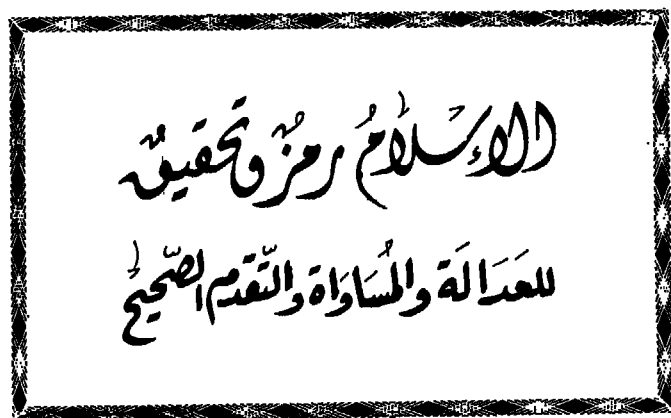 الإسْلَامُ رمزٌ وتحقيقٌ
للعَدَالَة والمُسَاوَاة والتّقدم الصّحيح